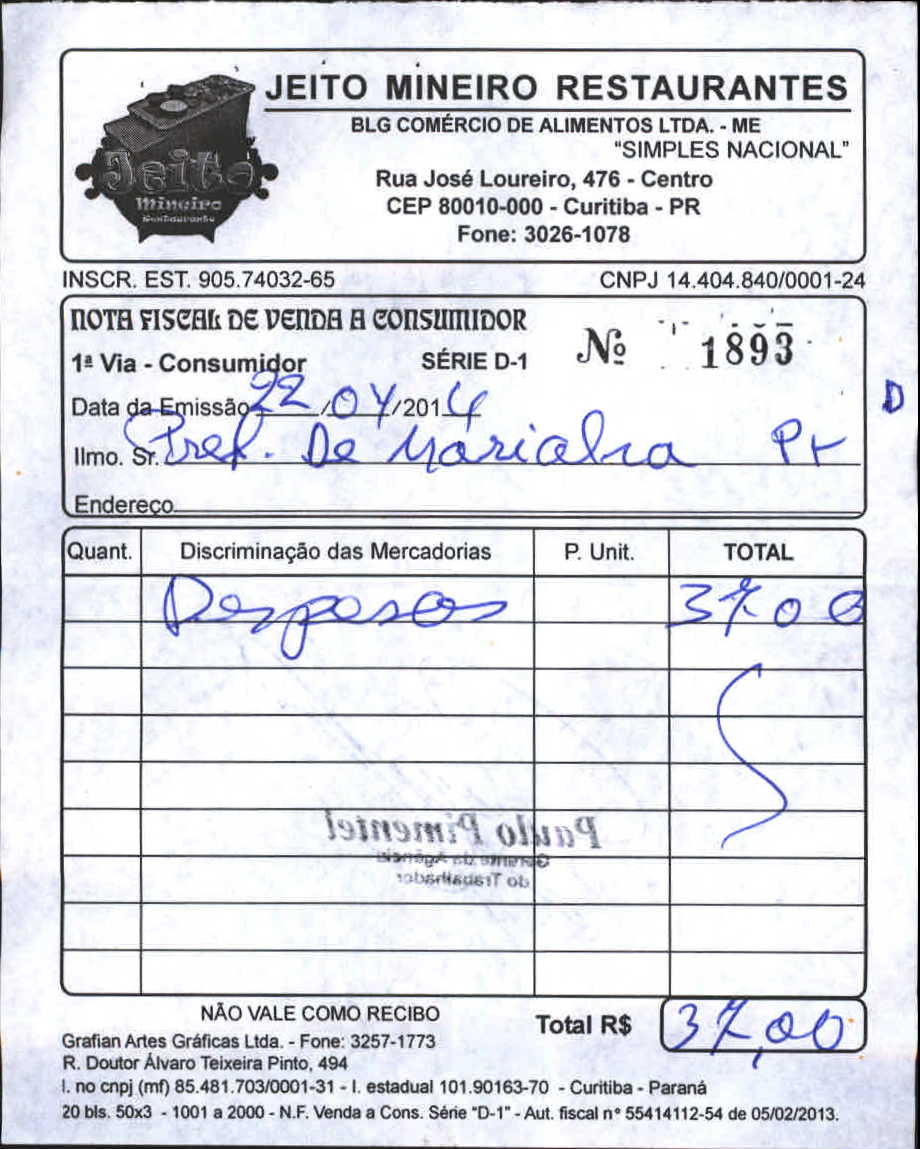 JEITO MINEIRO RESTAURANTES
BLG COMÉRCIO DE ALIMENTOS LTDA. - ME
"SIMPLES NACIONAL"
Rua José Loureiro, 476 - Centro
CEP 80010-000 - Curitiba - PR
Fone: 3026-1078
Jeito
Mineiro
Restaurante
INSCR. EST. 905.74032-65 CNPJ 14.404.840/0001-24
NOTA FISCAL DE VENDA A CONSUMIDOR
1ª Via - Consumidor SÉRIE D-1 Nº 1893
Data da Emissão 22/04/2014
D
Ilmo. Sr. Pref. De Marialva Pr
Endereço
Quant. Discriminação das Mercadorias P. Unit. TOTAL
Despesas 37.00
Paulo Pimentel
Gerente da Agência
do Trabalhador
NÃO VALE COMO RECIBO
Total R$ 37,00
Grafian Artes Gráficas Ltda. - Fone: 3257-1773
R. Doutor Álvaro Teixeira Pinto, 494
I. no cnpj (mf) 85.481.703/0001-31 - I. estadual 101.90163-70 - Curitiba - Paraná
20 bls. 50x3 - 1001 a 2000 - N.F. Venda a Cons. Série "D-1" - Aut. fiscal nº 55414112-54 de 05/02/2013.